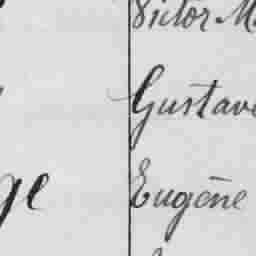 Victor M.
Gustave
ge Eugène